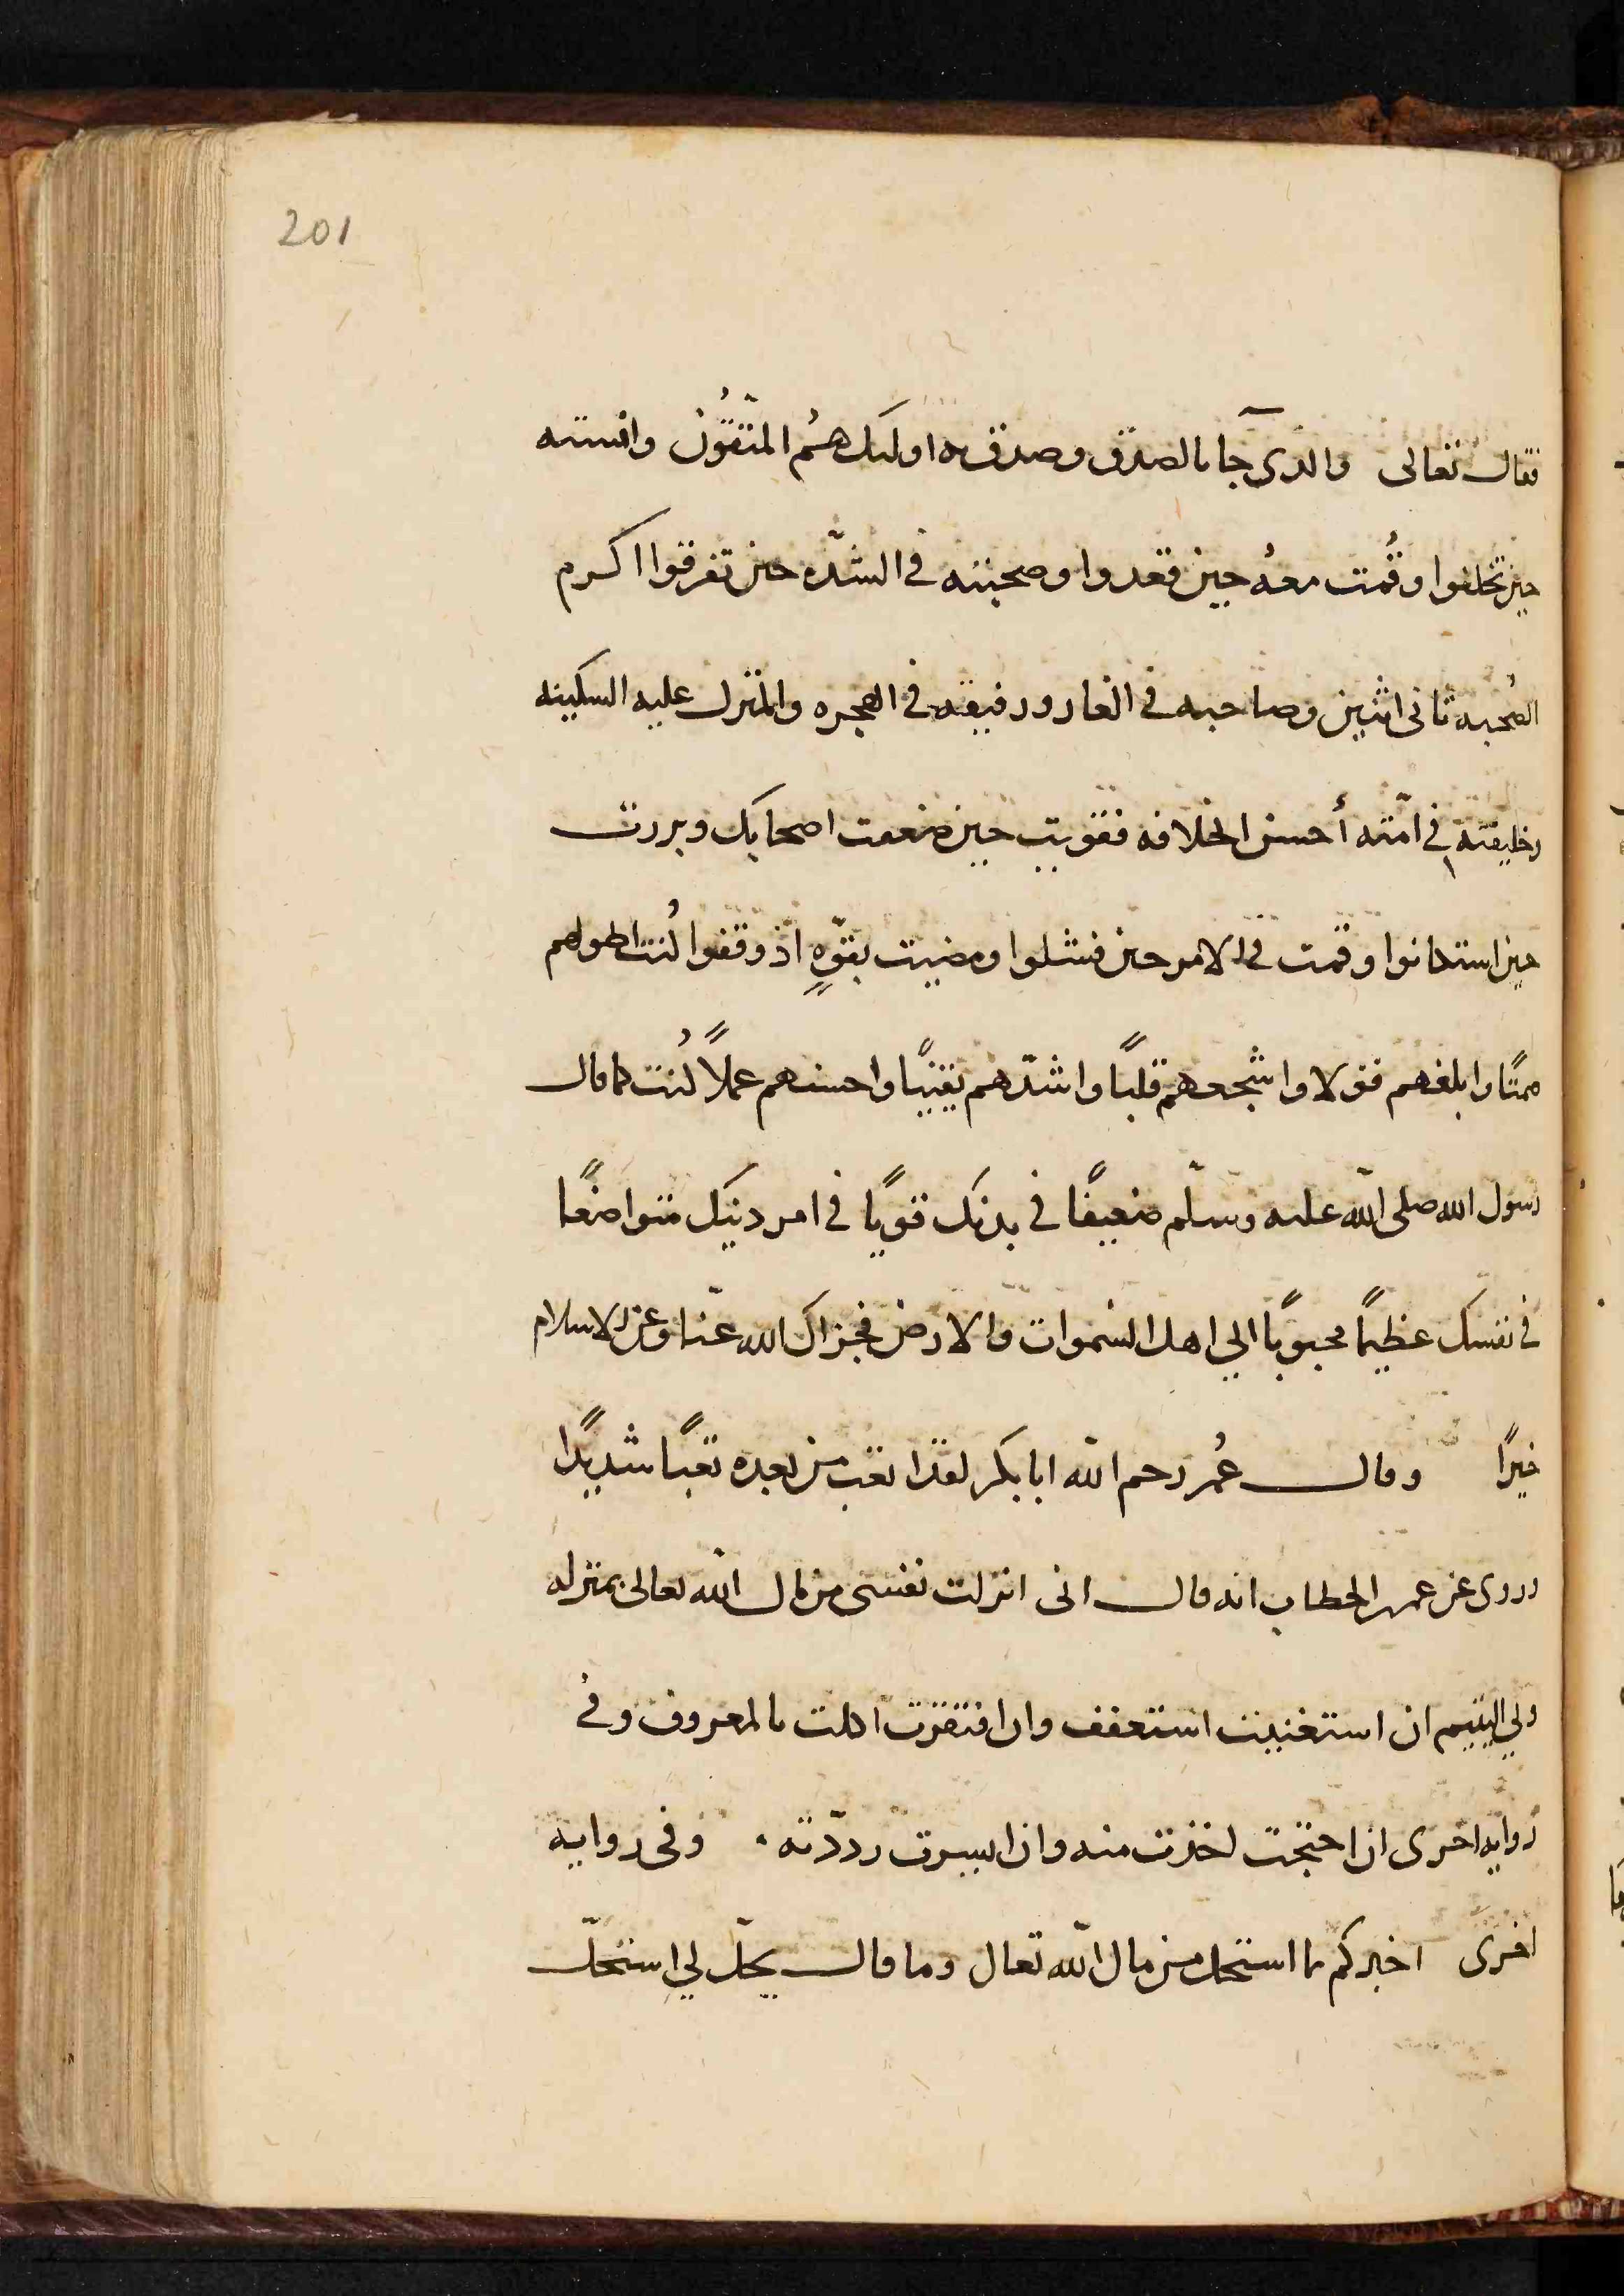 201
فقال تعالى والذى جآ بالصدق وصدق به اولىك همُ المتّقُون وانسته
حين تخلفوا وقُمت معهُ حين قعدوا وصحبته فى الشدّه حين تفرقوا اكرم
الصُحبه ثانى اثنين وصاحبه فى الغار ورفيقه فى الهجره والمنزل عليه السكينه
وخليفته فى امّته أحسن الخلافه فقويت حين ضعفت اصحابك وبررت
حين استكانوا وقمت فى الامر حين فشلوا ومضيت بقوّةٍ اذ وقفوا كُنت اطولهم
صمتًا وابلغهم قولا واشجعهم قلبًا واشدّهم يقينًا واحسنهم عملاً كُنت كما قال
رسول الله صلى الله عليه وسلّم ضعيفًا فى بدنك قويًا فى امر دينك متواضعًا
فى نفسك عظيمًا محبوبًا الي اهل السموات والارض فجزاك الله عنّا وعن الاسلام
خيرًا وقال عُمر رحم الله ابا بكر لقد اتعب من بعده تعبًا شديدًا
وروى عن عمر بن الخطاب انه قال انى انزلت نفسى من مال الله تعالى بمنزله
ولي اليتيم ان استغنيت استعفف وان افتقرت اكلت بالمعروف وفى
روايه اخرى ان احتجت اخذت منه وان ايسرت رددّته وفى روايه
اخرى اخبركم بما استحل من مال الله تعال وما قال يحلّ لي استحلّ